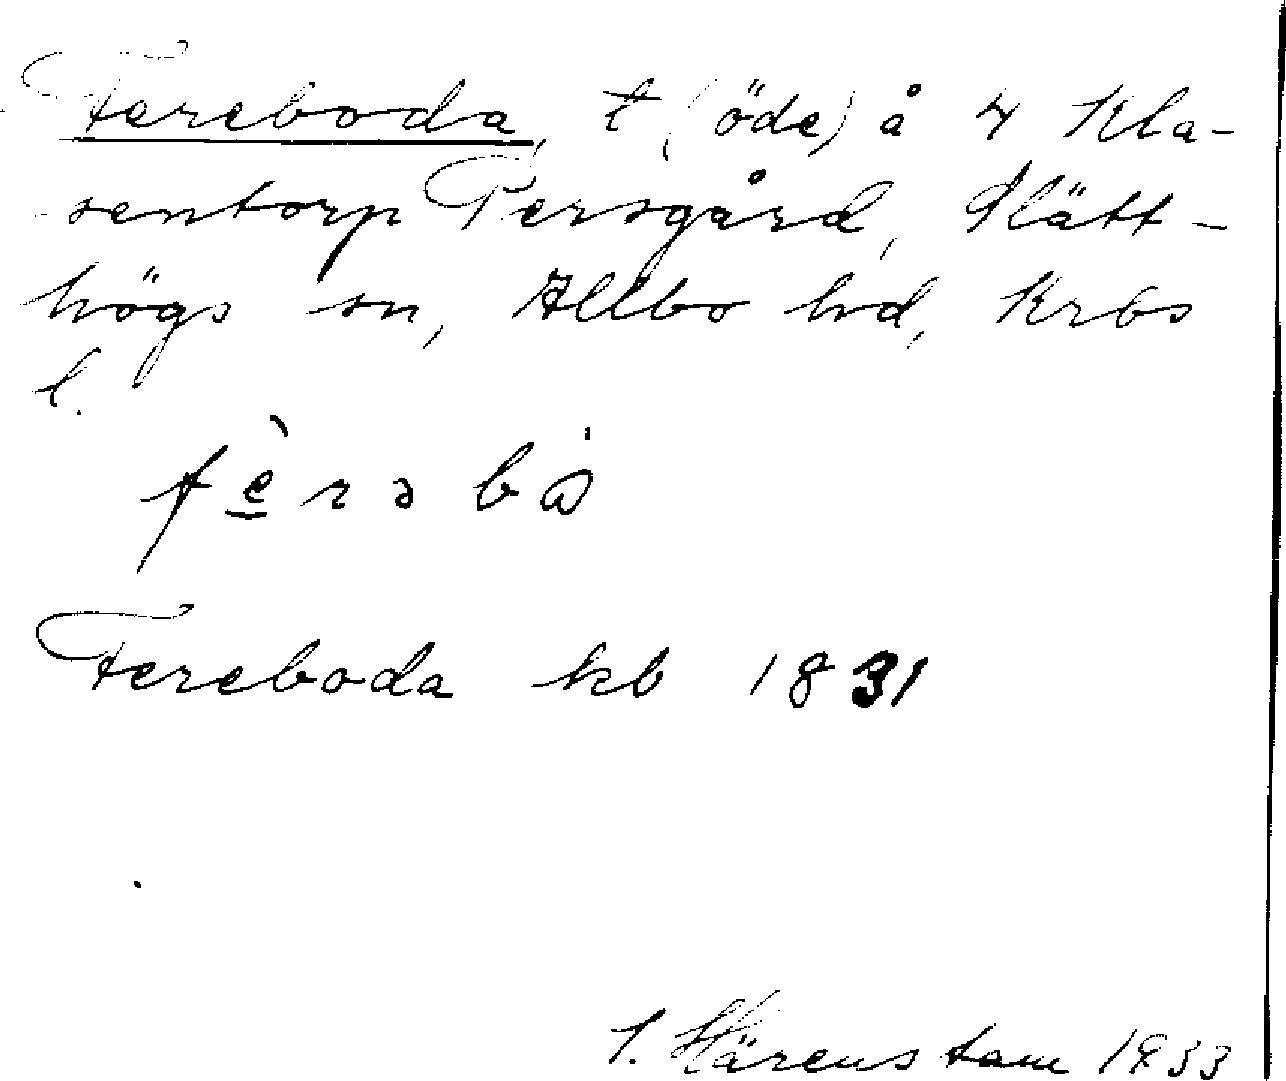 Fereboda, t (öde) å 4 Kla-
sentorp Persgård, Slätt-
högs sn, Allbo hd, Krbs
l.
fèrəbò
Fereboda kb 1831
S. Härenstam 1933